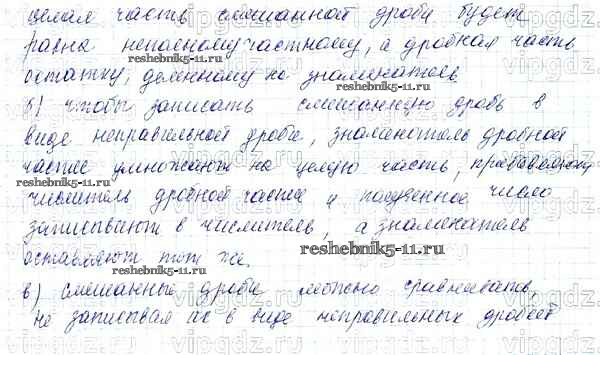 целая часть смешанной дроби будет
равна неполному частному, а дробная часть
остатку, деленному на знаменатель
reshebnik5-11.ru
б) чтобы записать смешанную дробь в
виде неправильной дроби, знаменатель дробной
части умножают на целую часть, прибавляют
reshebnik5-11.ru
числитель дробной части и полученное число
записывают в числитель, а знаменатель
reshebnik5-11.ru
оставляют тот же.
reshebnik5-11.ru
в) Смешанные дроби можно сравнивать,
не записывая их в виде неправильных дробей
vipgdz.ru